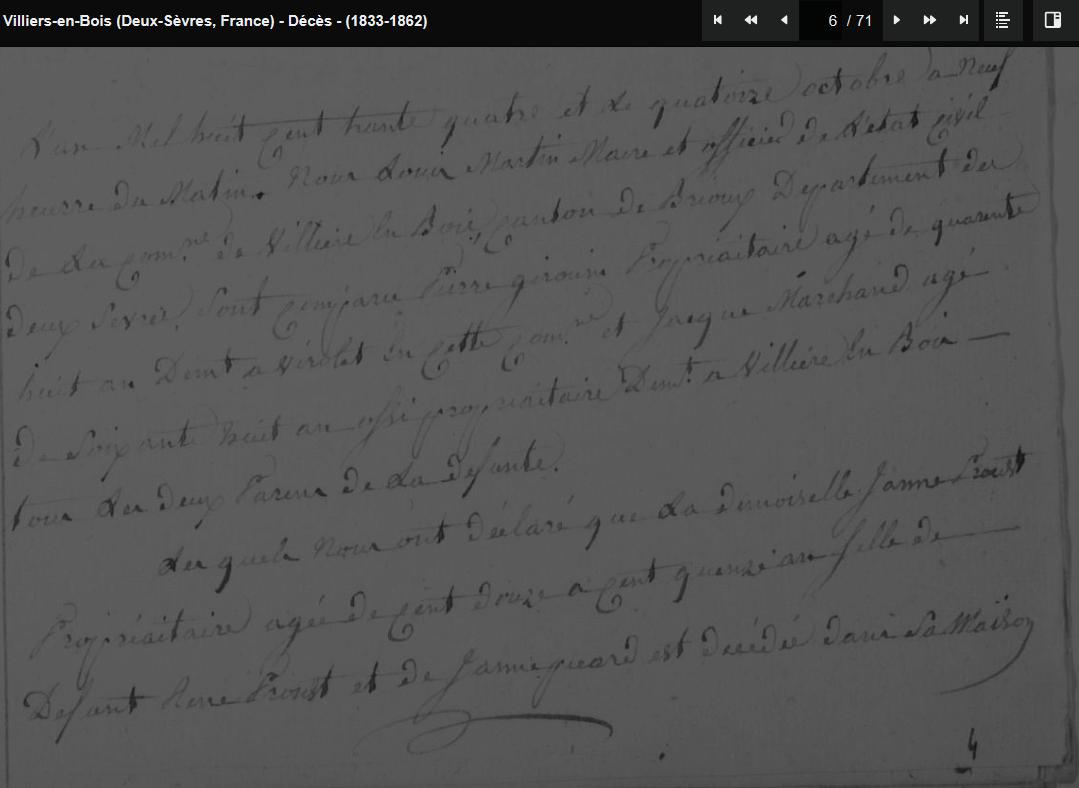 Villiers-en-Bois (Deux-Sèvres, France) - Décès - (1833-1862)
6 / 71
L'an Mil huit cent trante quatre et Le quatorze octobre a Neuf
heurre du Matin. Nous Louis Martin Maire et officier de L'état civil
de La com.ne de Villiere En Bois, canton de Brioux Departement des
deux Sevres, Sont comparu Pierre girouin Propriaitaire agé de quarente
huit an Demt a virolet En cette com.ne et Jacque Marchand agé
de Soixante huit an ossi propriaitaire Demt a Villiere En Bois
tous Les deux Parens de La defunte.
Les quels Nous ont déclaré que La demoiselle Janne Proust
Propriaitaire agée de cent douze a cent quinze an fille de
Defunt Rene Proust et de Janne picard est décédée dans Sa Maison
4